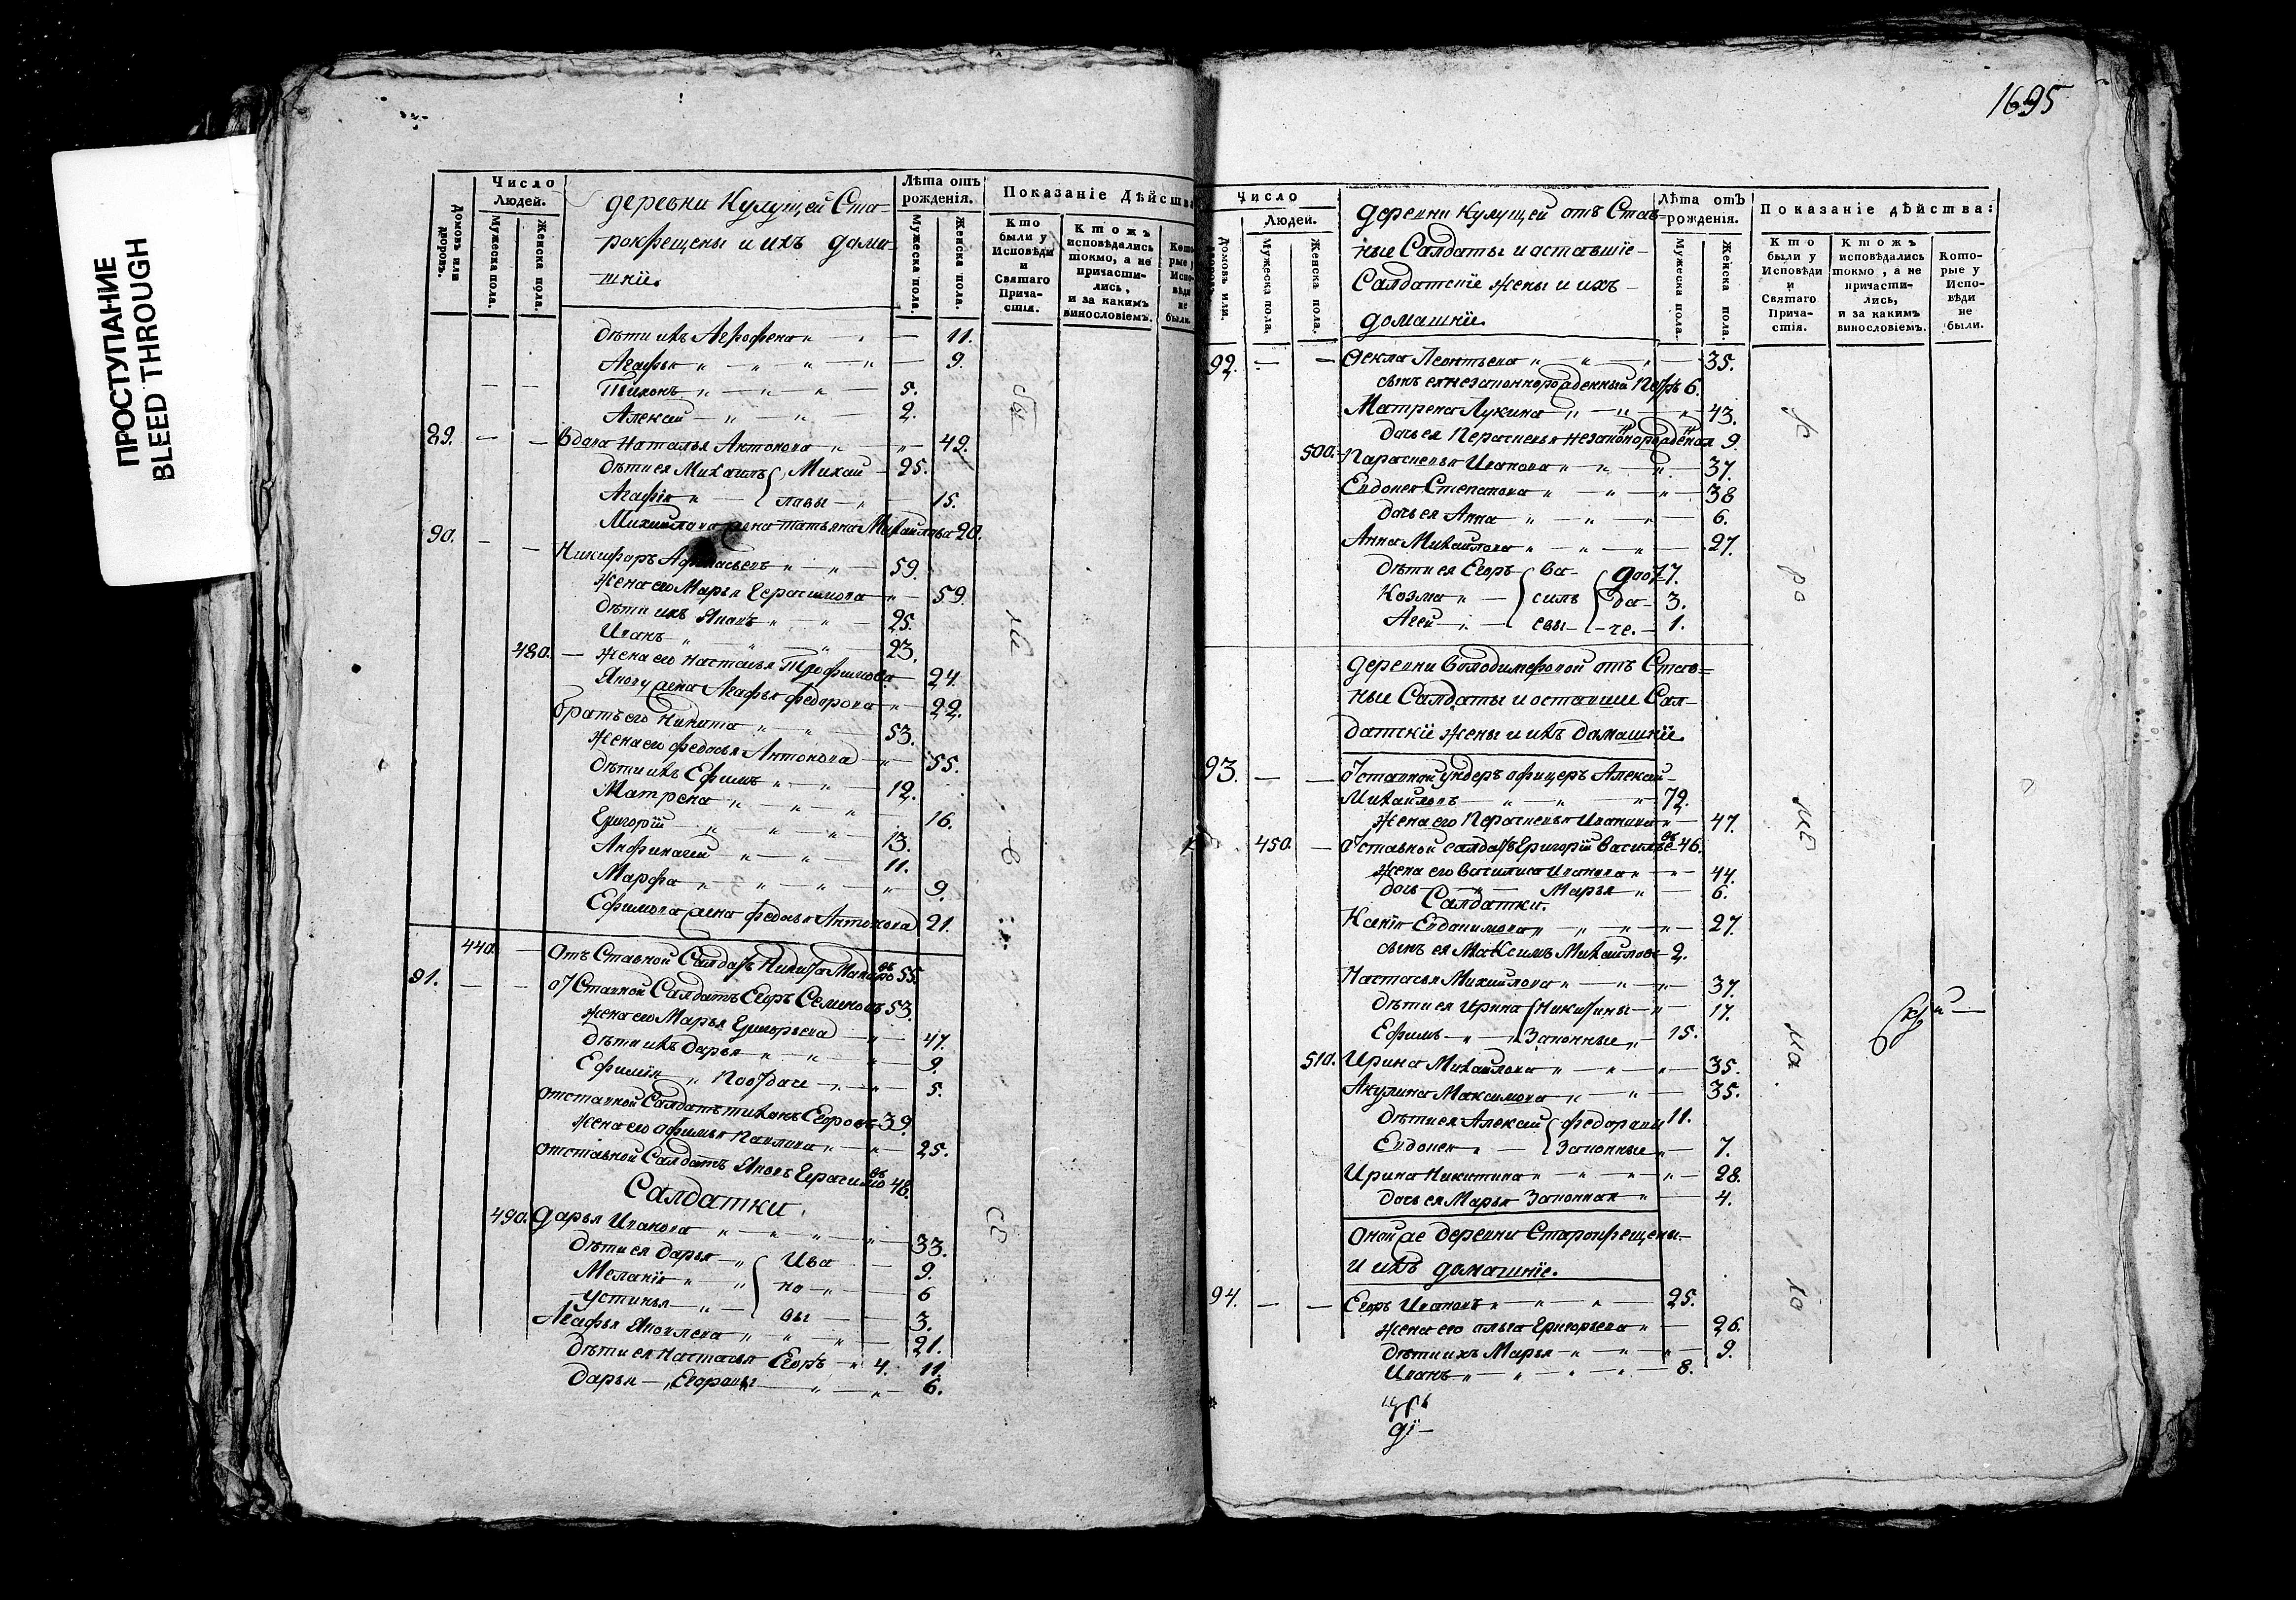 ПРОСТУПАНИЕ
BLEED THROUGH
Домовъ или дворовъ.
Число Людей.
Мужеска пола.
Женска пола.
деревни Кулущей Ста-
рокрещены и ихъ дома-
шніе.
Лѣта отъ рожденія.
Мужеска пола.
Женска пола.
Показаніе Дѣйства
Кто были у Исповѣди и Святаго Прича-стія.
Ктожъ исповѣдались токмо, а не причасти-лись, и за какимъ винословіемъ.
Кото-рые у Испо-вѣди не были.
дѣти ихъ Аграфена 11.
Агафья 9.
Тихонъ 5.
Алексѣй 2.
89. вдова Наталья Антонова 49.
дѣти ея Михаилъ Михай 25.
Агафія ловы 15.
Михайлова жена татьяна Михайлова 20.
90. Никифоръ Афанасьевъ 59.
жена его Марья Герасимова 59.
дѣти ихъ Яковъ 25.
Иванъ 23.
480. жена его Настасья Трофимова 24.
Якову жена Агафья федорова 22.
братъ его Никита 53.
жена его федосья Антонова 55.
дѣти ихъ Ефимъ 12.
Матрена 16.
Григорій 13.
11.
Марфа 9.
Ефимова жена федосья Антонова 21.
440. Отъ Ставной Салдатъ Никита Макаровъ 55.
91. отставной Салдатъ Егоръ Семеновъ 53.
жена его Марья Григорьева 47.
дѣти ихъ дарья 9.
Ефимія 5.
отставной Салдатъ тихонъ Егоровъ 39.
жена его Офимья Павлова 25.
отставной Салдатъ Яковъ Герасимовъ 48.
Салдатки.
490. дарья Иванова 33.
дѣти ея дарья Ива 9.
Меланія но 6
Устинья вы 3.
Агафья Яковлева 21.
дѣти ея Настасья Егоръ 4. 11.
дарья Егоровы 6.
1695
Число Людей.
Домовъ или.
Мужеска пола.
Женска пола.
деревни Кулущей отъ Став-
ные Салдаты и оставшіе
Салдатскіе жены и ихъ
домашніи.
Лѣта отъ рожденія.
Мужеска пола.
Женска пола.
Показаніе дѣйства:
Кто были у Исповѣди и Святаго Прича-стія.
Ктожъ исповѣдались токмо, а не причасти-лись, и за какимъ винословіемъ.
Кото-рые у Испо-вѣди не были.
92. Фекла Леонтьева 35.
сынъ ея незаконнорожденный Петръ 6.
Матрена Лукина 43.
дочь ея Парасковья незаконнорожденая 9
500. Парасковья Иванова 37.
Евдокея Степанова 38
дочь ея Анна 6.
Анна Михайлова 27.
дѣти ея Егоръ Ва- 7.
Козма силь 3.
Агей евы 1.
деревни Володимеровой отъ Став-
ные Салдаты и оставшие Сал-
датскіи жены и ихъ домашніе.
93. отставной ундеръ офицеръ Алексѣй
Михайловъ 72.
жена его Парасковья Иванова 47.
450. отставной салдатъ Григорій Васильевъ 46.
жена его Василиса Иванова 44.
дочь Марья 6.
Салдатки.
Ксенія Евдокимова 27.
сынъ ея Максимъ Михайловъ 2.
Настасья Михайлова 37.
дѣти ея Ирина Никитины 17.
Ефимъ Законные 15.
510. Ирина Михайлова 35.
Акулина Максимова 35.
дѣти ея Алексѣй федоровы 11.
Евдокея Законные 7.
Ирина Никитина 28.
дочь ея Марья Законная 4.
оной же деревни Старокрещены
и ихъ домашніе.
94. Егоръ Ивановъ 25.
жена его ольга Григорьева 26.
дѣти ихъ Марья 9.
Иванъ 8.